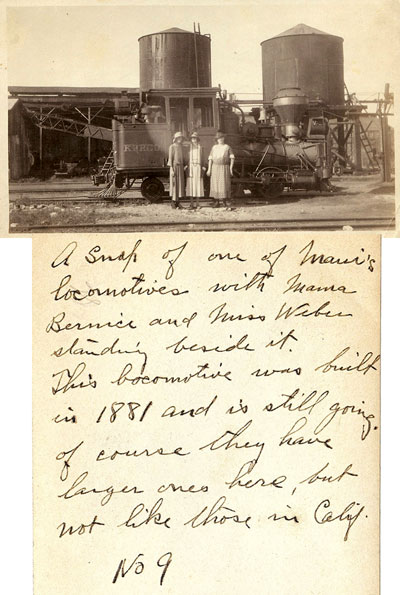 KRRCO
A Snap of one of Maui's
locomotives with Mama
Bernice and Miss Weber
standing beside it.
This locomotive was built
in 1881 and is still going.
of course they have
larger ones here, but
not like those in Calif.
No 9